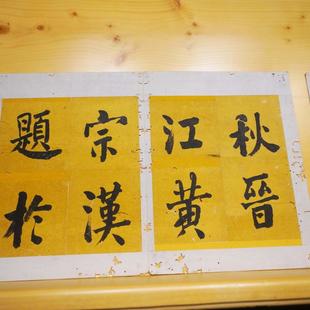 秋晉
江黄
宗漢
題於